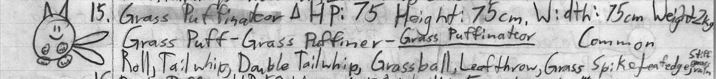 15. Grass Puffinator Δ HP: 75 Height: 75cm, Width: 75cm Weight: 2kg
Grass Puff-Grass Puffiner-Grass Puffinator Common
Roll, Tail whip, Double Tailwhip, Grassball, Leafthrow, Grass Spike